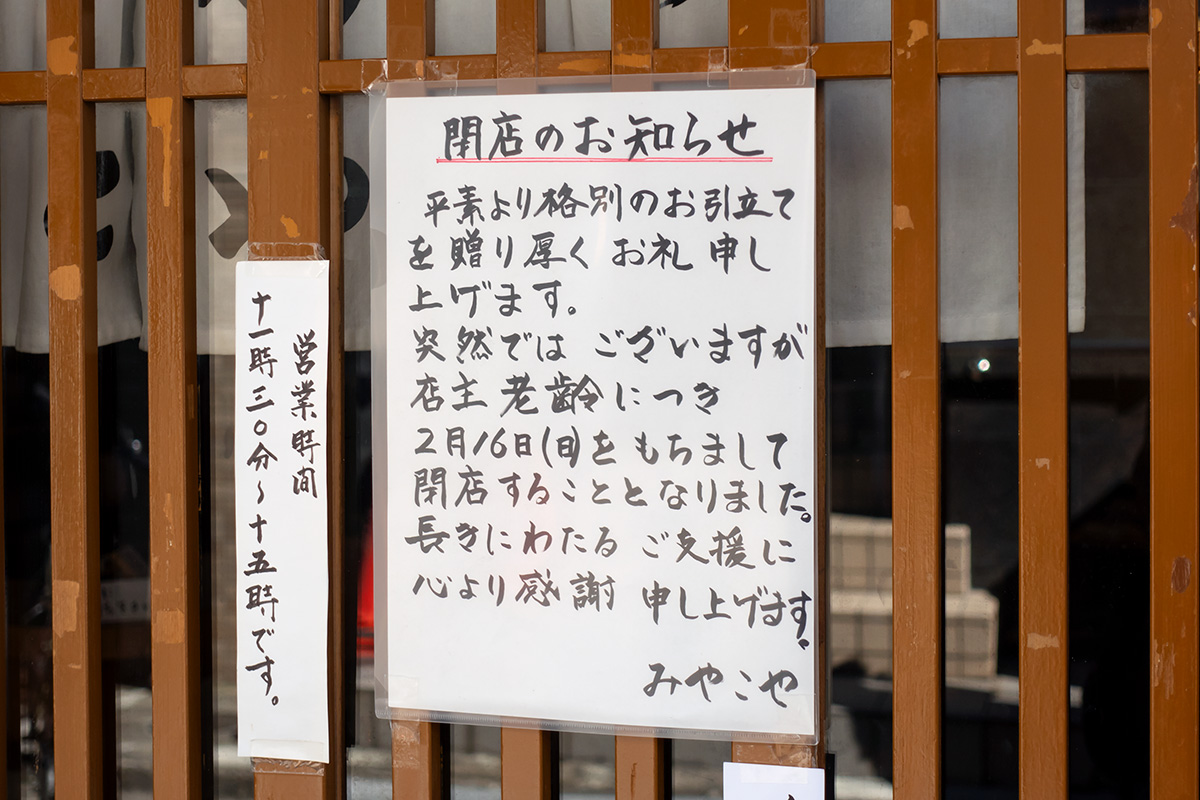 閉店のお知らせ
平素より格別のお引立て
を贈り厚くお礼申し
上げます。
突然ではございますが
店主老齢につき
2月16日(日)をもちまして
閉店することとなりました。
長きにわたるご支援に
心より感謝申し上げます。
みやこや
営業時間
十一時三〇分〜十五時です。